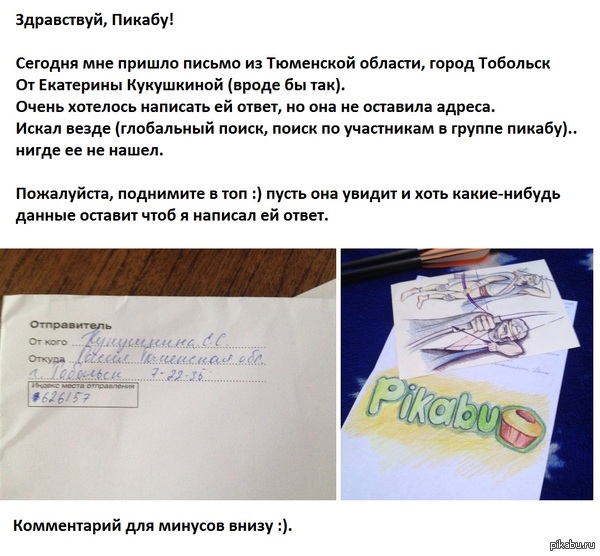 Здравствуй, Пикабу!
Сегодня мне пришло письмо из Тюменской области, город Тобольск
От Екатерины Кукушкиной (вроде бы так).
Очень хотелось написать ей ответ, но она не оставила адреса.
Искал везде (глобальный поиск, поиск по участникам в группе пикабу)..
нигде ее не нашел.
Пожалуйста, поднимите в топ :) пусть она увидит и хоть какие-нибудь
данные оставит чтоб я написал ей ответ.
Отправитель
От кого Кукушкина Е.С.
Откуда Россия Тюменская обл.
г. Тобольск 7-22-35
Индекс места отправления
626157
Pikabu
Комментарий для минусов внизу :).
pikabu.ru